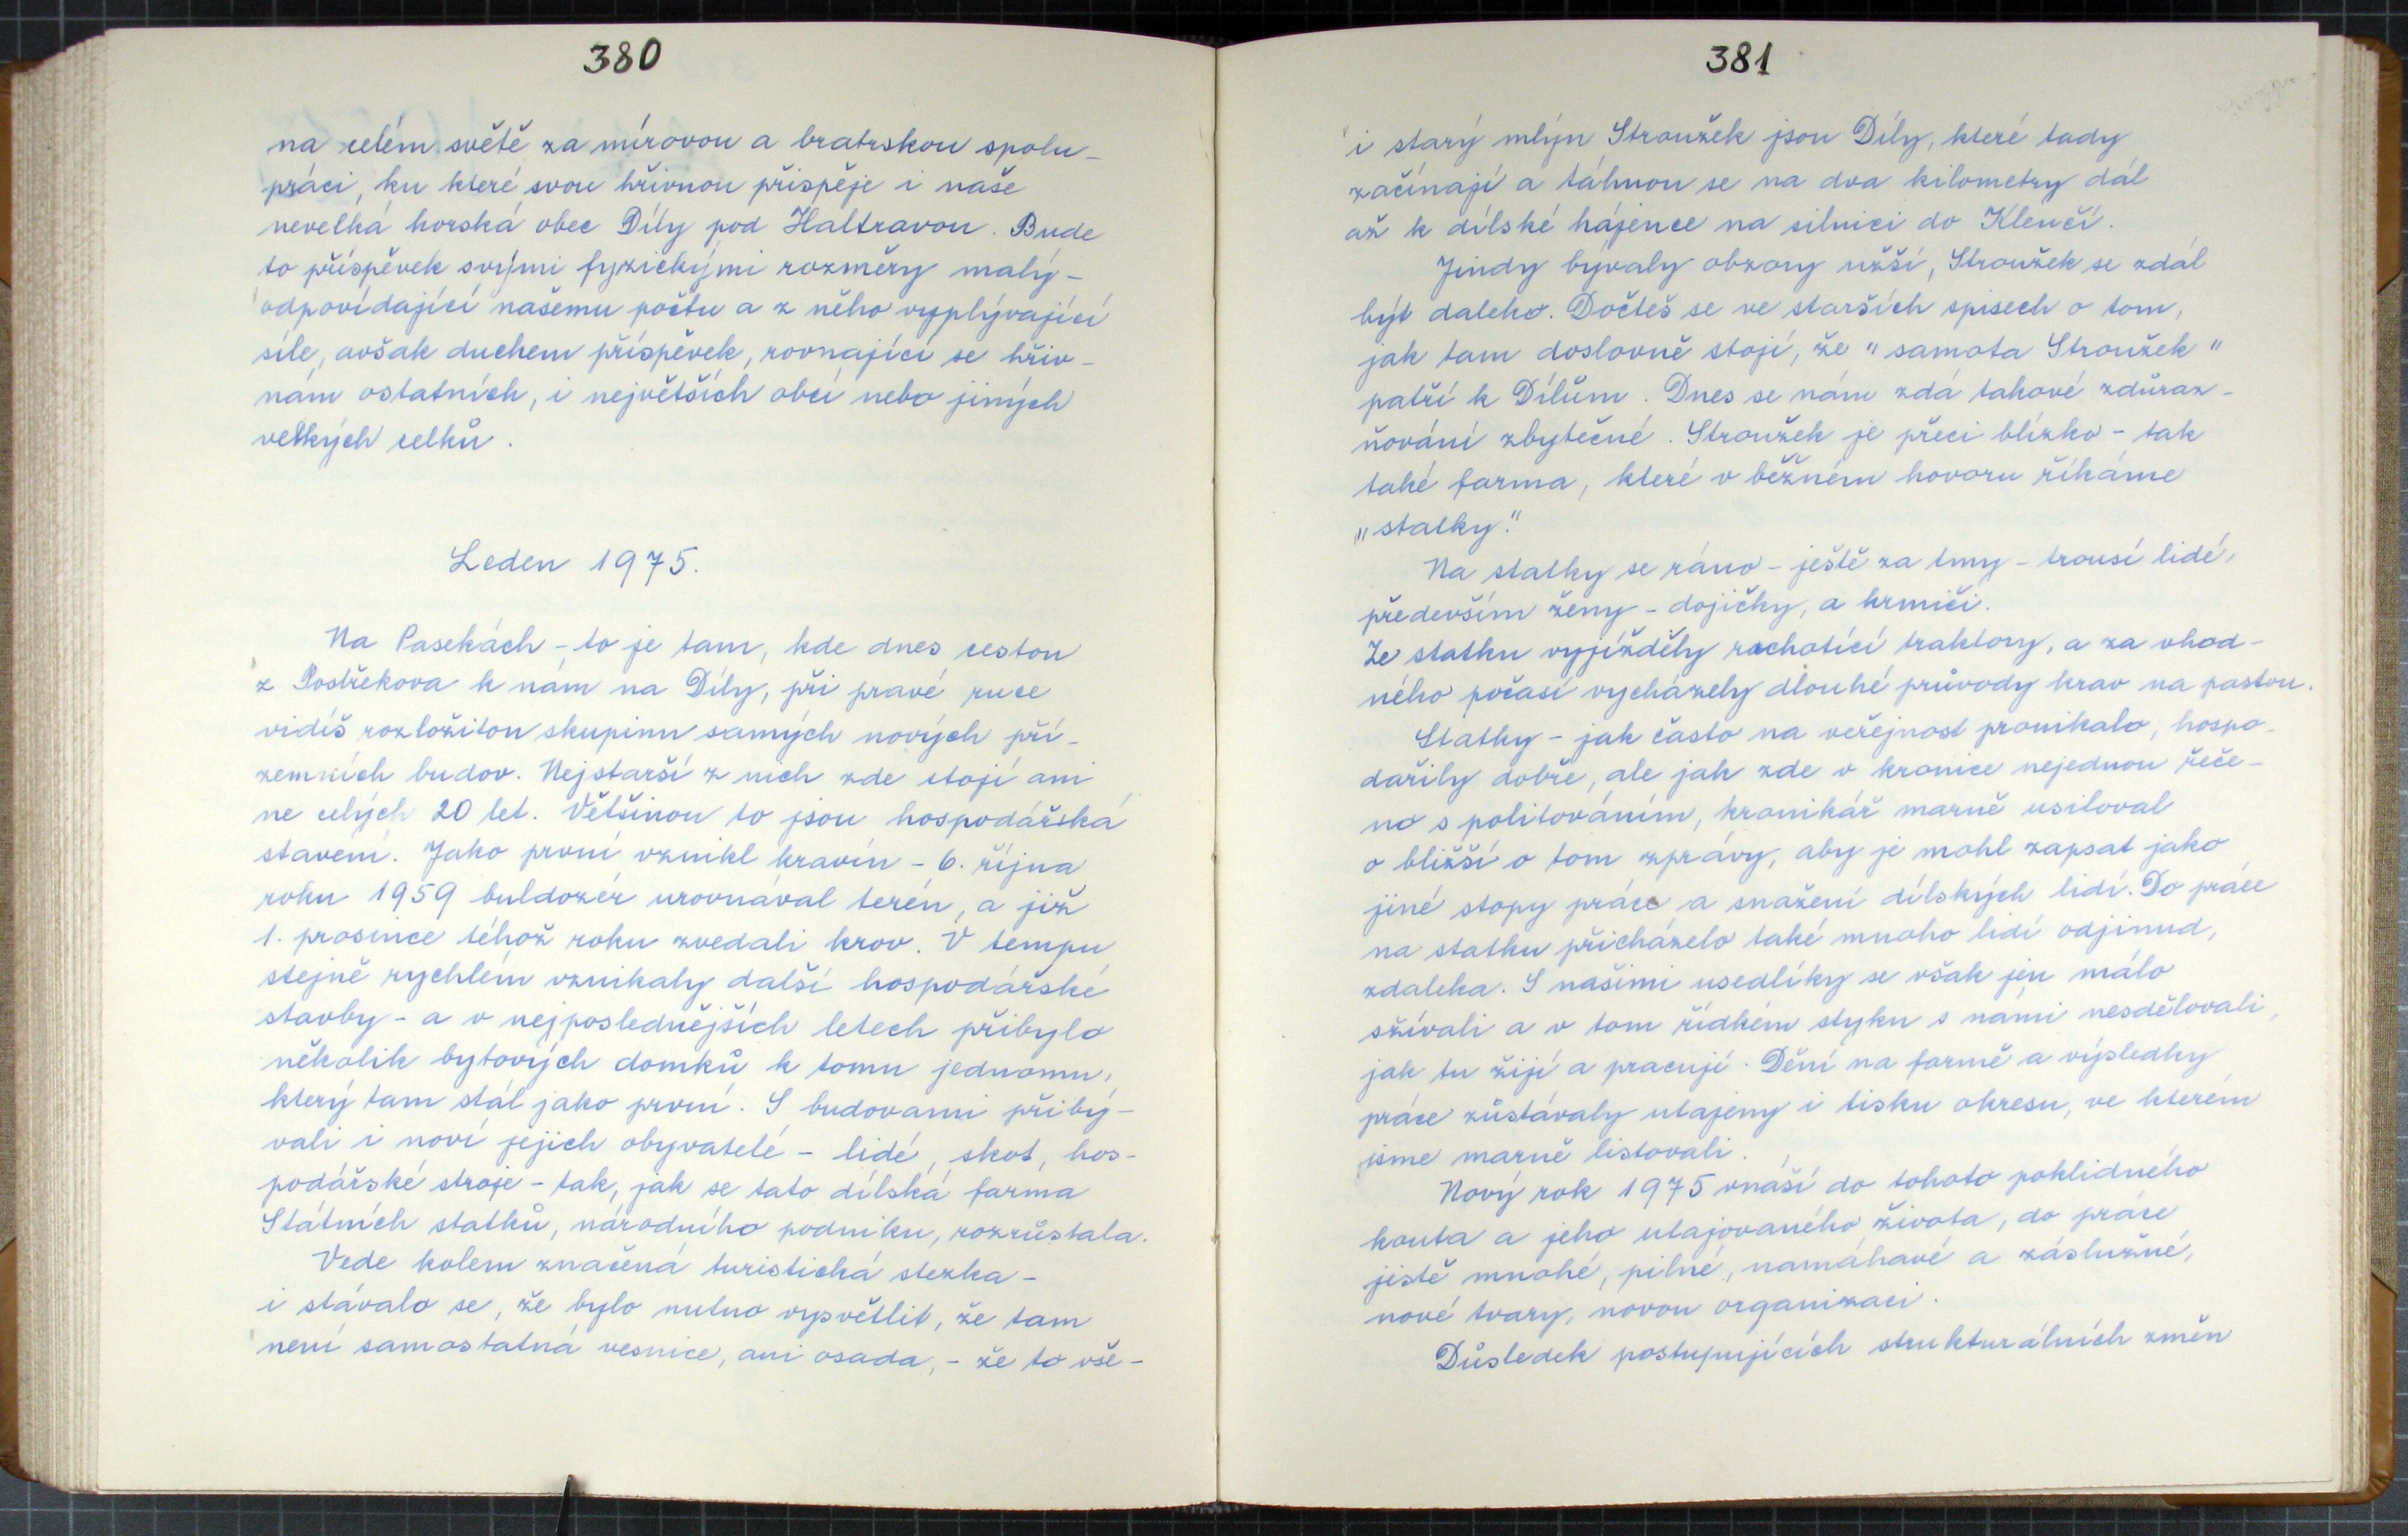 380
na celém světě za mírovou a bratrskou spolu-
práci, ku které svou hřivnou přispěje i naše
nevelká horská obec Díly pod Haltravou. Bude
to příspěvek svými fyzickými rozměry malý -
odpovídající našemu počtu a z něho vyplývající
síle, avšak duchem příspěvek, rovnající se hřiv-
nám ostatních, i největších obcí nebo jiných
velkých celků.
Leden 1975.
Na Pasekách - to je tam, kde dnes cestou
z Postřekova k nám na Díly, při pravé ruce
vidíš rozložitou skupinu samých nových pří-
zemních budov. Nejstarší z nich zde stojí ani
ne celých 20 let. Většinou to jsou hospodářská
stavení. Jako první vznikl kravín - 6. října
roku 1959 buldozér urovnával terén, a již
1. prosince téhož roku zvedali krov. V tempu
stejně rychlém vznikaly další hospodářské
stavby - a v nejposlednějších letech přibylo
několik bytových domků k tomu jednomu,
který tam stál jako první. S budovami přibý-
vali i noví jejich obyvatelé - lidé, skot, hos-
podářské stroje - tak, jak se tato dílská farma
Státních statků, národního podniku, rozrůstala.
Vede kolem značená turistická stezka -
i stávalo se, že bylo nutno vysvětlit, že tam
není samostatná vesnice, ani osada, - že to vše -
381
i starý mlýn Stroužek jsou Díly, které tady
začínají a táhnou se na dva kilometry dál
až k dílské hájence na silnici do Klenčí.
Jindy bývaly obzory užší, Stroužek se zdál
být daleko. Dočteš se ve starších spisech o tom,
jak tam doslovně stojí, že "samota Stroužek"
patří k Dílům. Dnes se nám zdá takové zdůraz-
ňování zbytečné. Stroužek je přeci blízko - tak
také farma, které v běžném hovoru říkáme
"statky."
Na statky se ráno - ještě za tmy - trousí lidé,
především ženy - dojičky, a krmiči.
Ze statku vyjížděly rachotící traktory, a za vhod-
ného počasí vycházely dlouhé průvody krav na pastvu.
Statky - jak často na veřejnost pronikalo, hospo-
dařily dobře, ale jak zde v kronice nejednou řeče-
no s politováním, kronikář marně usiloval
o bližší o tom zprávy, aby je mohl zapsat jako
jiné stopy práce a snažení dílských lidí. Do práce
na statku přicházelo také mnoho lidí odjinud,
zdaleka. S našimi usedlíky se však jen málo
sžívali a v tom řídkém styku s námi nesdělovali,
jak tu žijí a pracují. Dění na farmě a výsledky
práce zůstávaly utajeny i tisku okresu, ve kterém
jsme marně listovali.
Nový rok 1975 vnáší do tohoto poklidného
kouta a jeho utajovaného života, do práce
jistě mnohé, pilné, namáhavé a záslužné,
nové tvary, novou organizaci.
Důsledek postupujících strukturálních změn